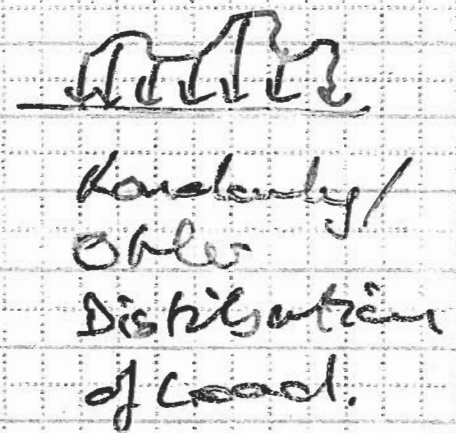 Randomly/
Other
Distribution
of Load.